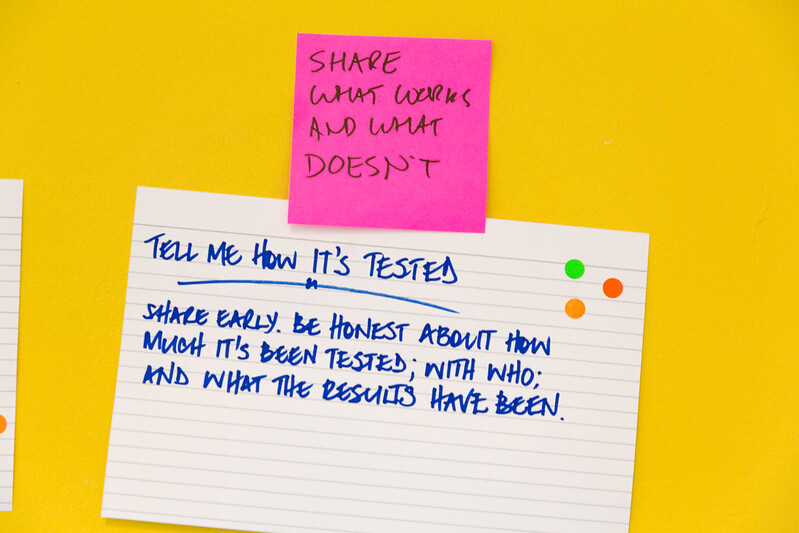 SHARE
WHAT WORKS
AND WHAT
DOESN'T
TELL ME HOW IT'S TESTED
SHARE EARLY. BE HONEST ABOUT HOW
MUCH IT'S BEEN TESTED; WITH WHO;
AND WHAT THE RESULTS HAVE BEEN.